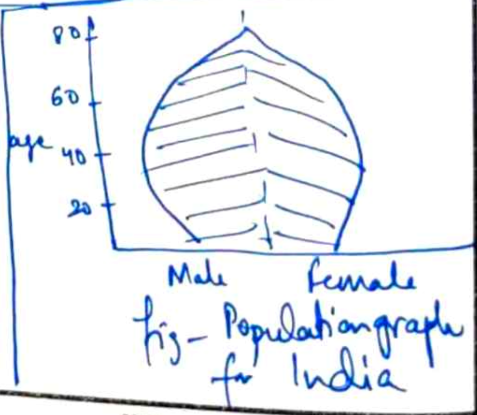 80
60
age
40
20
Male Female
fig - Population graph
for India